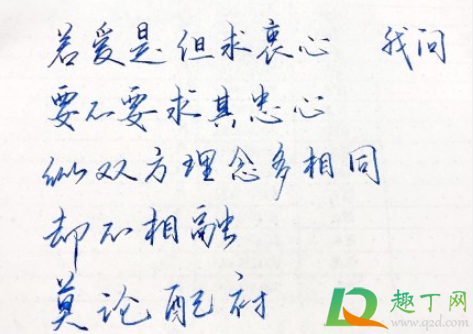 若爱是但求衷心 我问
要不要求其忠心
纵双方理念多相同
却不相融
莫论配衬
趣丁网
www.q2d.com